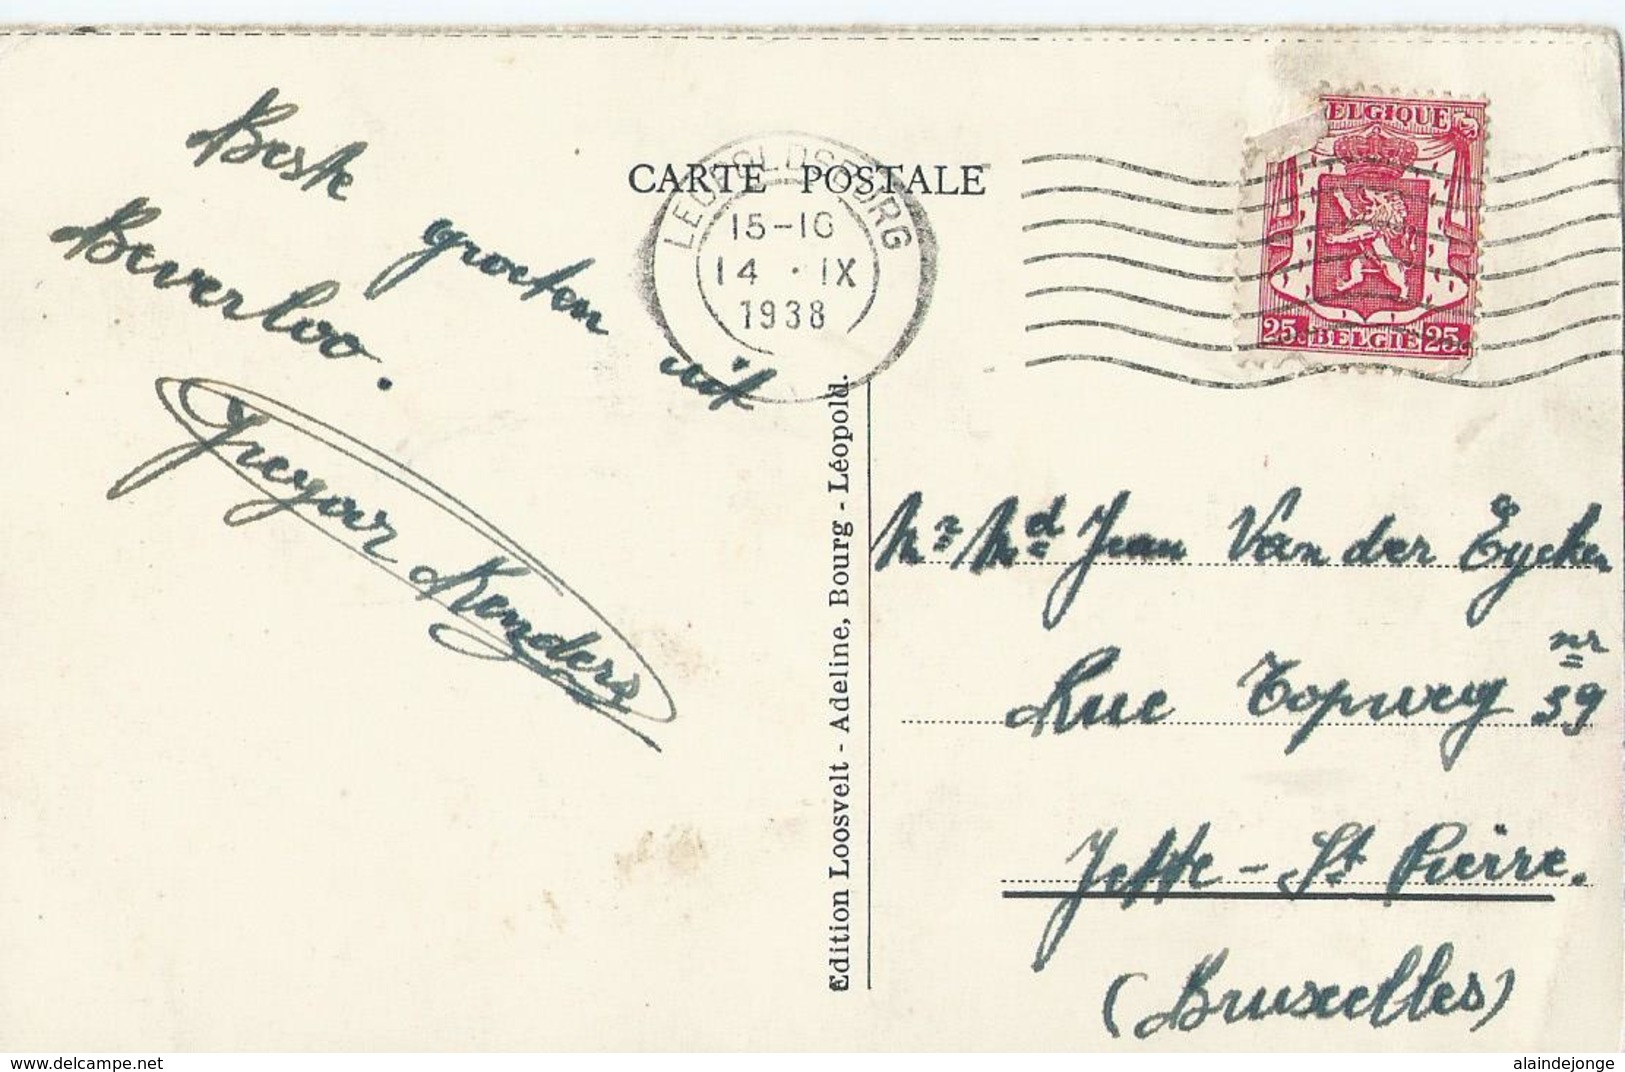 CARTE POSTALE
LEOPOLDSBURG
15-16
14 · IX
1938
ELGIQUE
25c BELGIE 25c
Beste groeten uit
Beverloo.
Gregoor Kenders
Edition Loosvelt - Adeline, Bourg - Léopold.
Mr Md Jean Van der Eycken
Rue Topweg nr 39
Jette - St Pierre.
(Bruxelles)
delcampe.net
alaindejonge